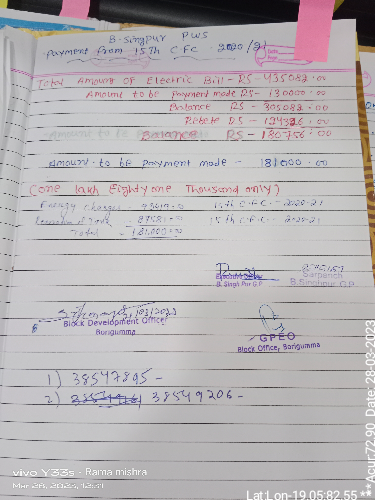 B. Singpur PWS
Payment From 15th CFC 2020/21
Total Amount of Electric Bill - RS - 435082.00
Amount to be payment made RS - 130000.00
Balance RS - 305082.00
Rebete RS - 124326.00
Balance RS - 180756.00
Amount to be payment made - 181000.00
(One lakh Eighty one Thousand only)
Energy Charges - 15th C.F.C. - 2020-21
15th C.F.C. - 2020-21
Total - 181,000.00
Executive Officer
B. Singh Pur G.P
Sarpanch
B. Singhpur G.P.
Block Development Officer
Borigumma
GPEO
Block Office, Borigumma
1) 38547895 -
2) 38549206 -
vivo Y33s · Rama mishra
Mar 28, 2023, 12:51
Lat Lon-19.05:82.55 ** Acur:72.90 Date, 28-03-2023